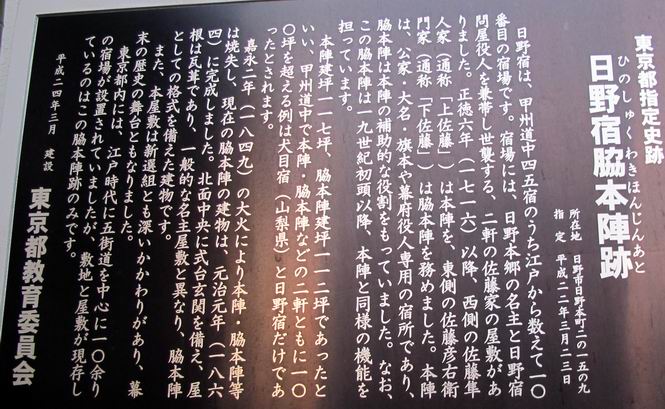 東京都指定史跡
日野宿脇本陣跡
ひのしゅくわきほんじんあと
所在地 日野市日野本町二の一五の九
指定 平成二二年三月二三日
日野宿は、甲州道中四五宿のうち江戸から数えて一〇
番目の宿場です。宿場には、日野本郷の名主と日野宿
問屋役人を兼帯し世襲する、二軒の佐藤家の屋敷があ
りました。正徳六年（一七一六）以降、西側の佐藤隼
人家（通称「上佐藤」）は本陣を、東側の佐藤彦右衛
門家（通称「下佐藤」）は脇本陣を務めました。本陣
は、公家・大名・旗本や幕府役人専用の宿所であり、
脇本陣は本陣の補助的な役割をもっていました。なお、
この脇本陣は一九世紀初頭以降、本陣と同様の機能を
担っています。
本陣建坪一一七坪、脇本陣建坪一一二坪であったと
いい、甲州道中で本陣・脇本陣などの二軒ともに一〇
〇坪を超える例は犬目宿（山梨県）と日野宿だけであ
ったとされます。
嘉永二年（一八四九）の大火により本陣・脇本陣等
は焼失し、現在の脇本陣の建物は、元治元年（一八六
四）に完成しました。北面中央に式台玄関を備え、屋
根は瓦葺であり、一般的な名主屋敷と異なり、脇本陣
としての格式を備えた建物です。
また、本屋敷は新選組とも深いかかわりがあり、幕
末の歴史の舞台ともなりました。
東京都内には、江戸時代に五街道を中心に一〇余り
の宿場が設置されていましたが、敷地と屋敷が現存し
ているのはこの脇本陣跡のみです。
平成二四年三月 建設
東京都教育委員会